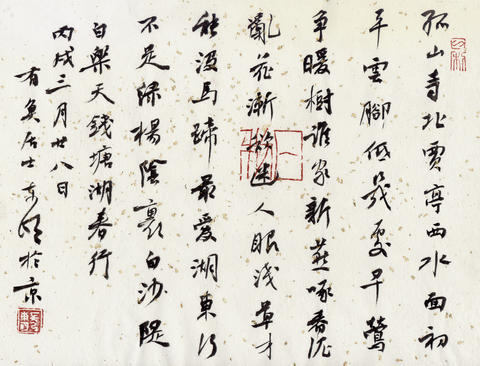 孤山寺北賈亭西水面初
平雲腳低幾處早鶯
爭暖樹誰家新燕啄春泥
亂花漸欲迷人眼淺草才
能沒馬蹄最愛湖東行
不足綠楊陰裏白沙隄
白樂天錢塘湖春行
丙戌三月廿八日
有魚居士東於京